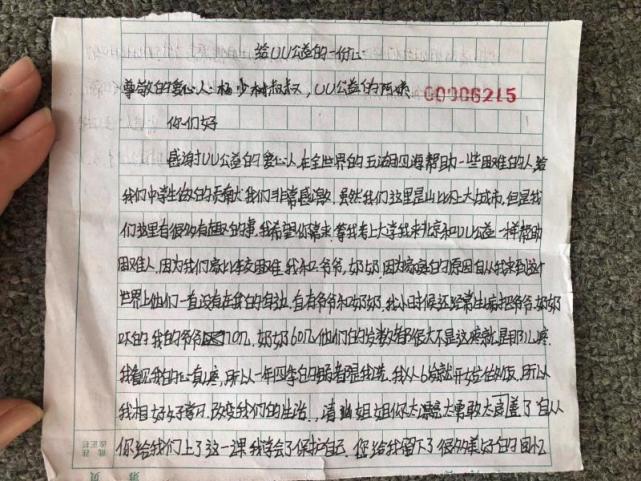 给UU公益的一份心
尊敬的爱心人:杨少树叔叔,UU公益的阿姨 00006215
你们好
感谢UU公益的爱心人,在全世界的五湖四海帮助一些困难的人,给
我们中学生做的 我们非常感激。虽然我们这里是山比不上大城市,但是我
们这里有很多有趣的事,我希望你常来,等我考上大学我来北京和UU公益一样帮助
困难人,因为我们家比较困难,我和爷爷,奶奶,因为家庭的原因自从我来到这个
世界上他们一直没有在我的身边,自有爷爷和奶奶,我小时候还经常生病把爷爷,奶奶
吓的,我的爷爷70几,奶奶60几他们的岁数都很大不是这疼就是那儿疼
我看见我的心真疼,所以一年四季的 都跟我洗,我从6岁就开始做饭,所以
我相好好学习,改变我们的生活、、 姐姐你太漂亮太勇敢太 了自从
你给我们上了这一课我学会了保护自己,您给我留下了很多美好的回忆